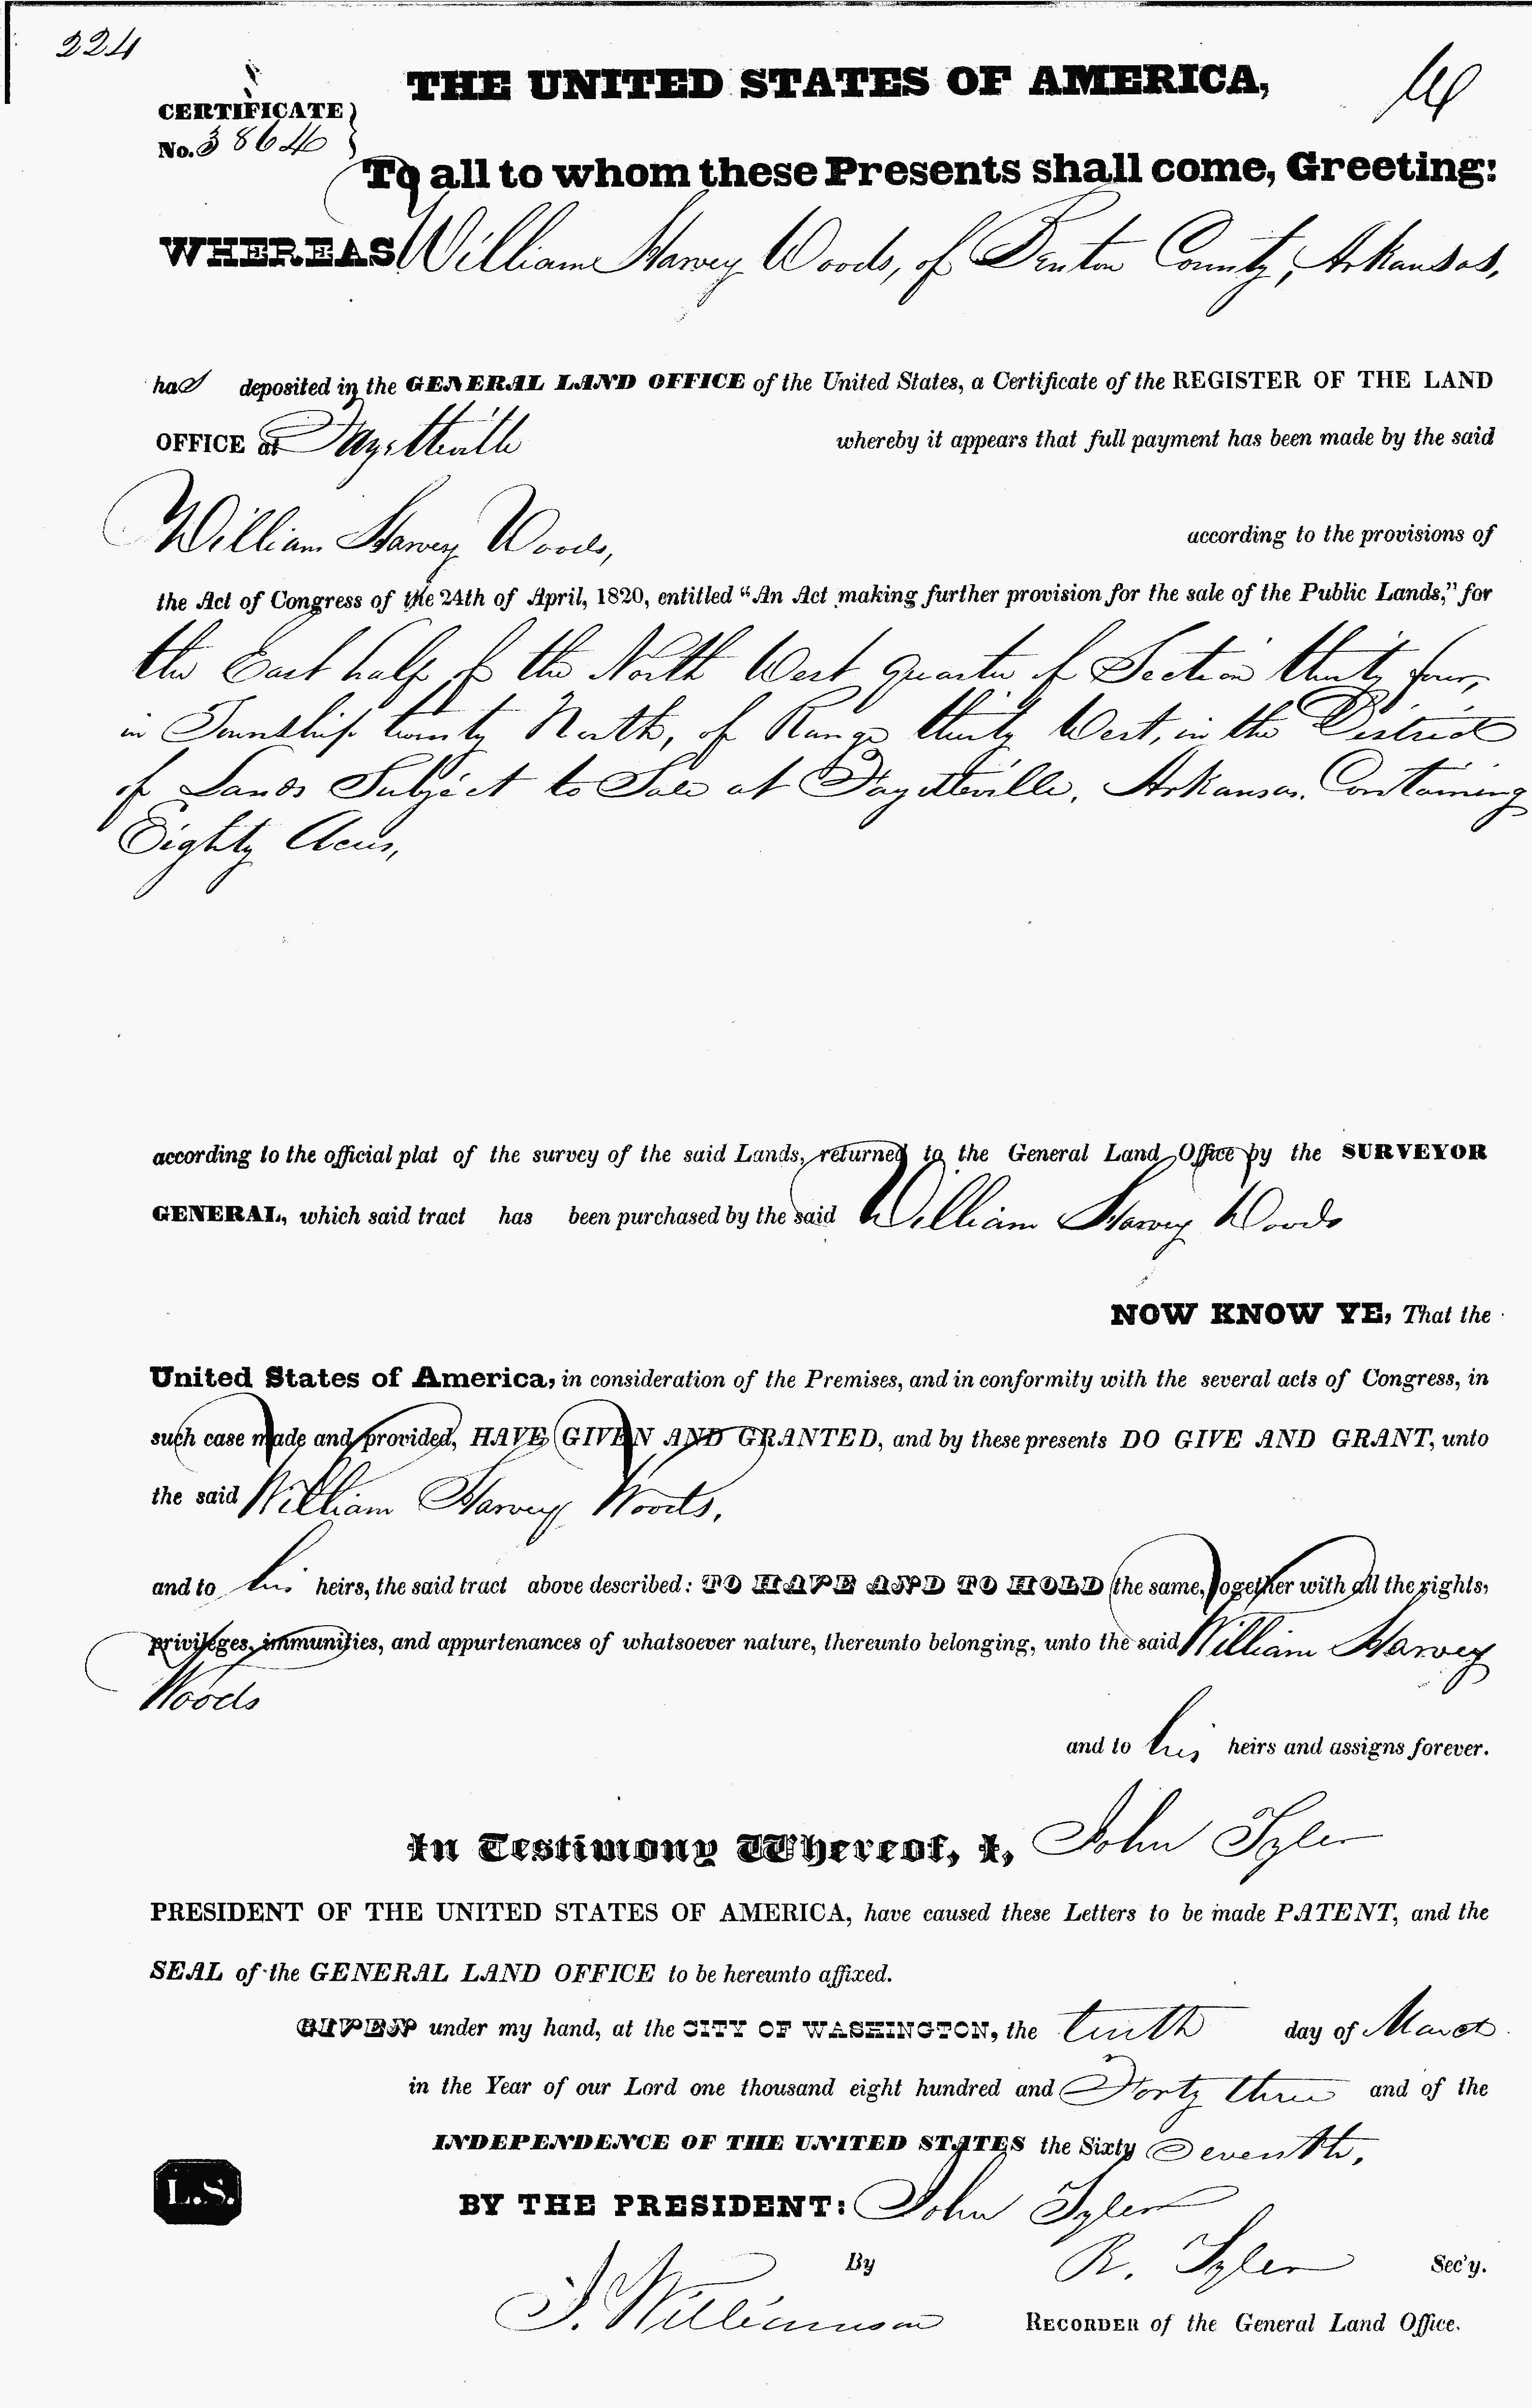 224
THE UNITED STATES OF AMERICA,
CERTIFICATE
No. 3864
To all to whom these Presents shall come, Greeting:
WHEREAS William Harvey Woods, of Benton County, Arkansas,
has deposited in the GENERAL LAND OFFICE of the United States, a Certificate of the REGISTER OF THE LAND
OFFICE at Fayetteville whereby it appears that full payment has been made by the said
William Harvey Woods, according to the provisions of
the Act of Congress of the 24th of April, 1820, entitled "An Act making further provision for the sale of the Public Lands," for
the East half of the North West quarter of Section thirty four,
in Township twenty North, of Range thirty West, in the District
of Lands Subject to Sale at Fayetteville, Arkansas, Containing
Eighty Acres,
according to the official plat of the survey of the said Lands, returned to the General Land Office by the SURVEYOR
GENERAL, which said tract has been purchased by the said William Harvey Woods
NOW KNOW YE, That the
United States of America, in consideration of the Premises, and in conformity with the several acts of Congress, in
such case made and provided, HAVE GIVEN AND GRANTED, and by these presents DO GIVE AND GRANT, unto
the said William Harvey Woods,
and to his heirs, the said tract above described: TO HAVE AND TO HOLD the same, together with all the rights,
privileges, immunities, and appurtenances of whatsoever nature, thereunto belonging, unto the said William Harvey
Woods
and to his heirs and assigns forever.
In Testimony Whereof, I, John Tyler
PRESIDENT OF THE UNITED STATES OF AMERICA, have caused these Letters to be made PATENT, and the
SEAL of the GENERAL LAND OFFICE to be hereunto affixed.
GIVEN under my hand, at the CITY OF WASHINGTON, the tenth day of March
in the Year of our Lord one thousand eight hundred and Forty three and of the
INDEPENDENCE OF THE UNITED STATES the Sixty Seventh.
L.S.
BY THE PRESIDENT: John Tyler
By R. Tyler Sec'y.
J. Williamson RECORDER of the General Land Office.